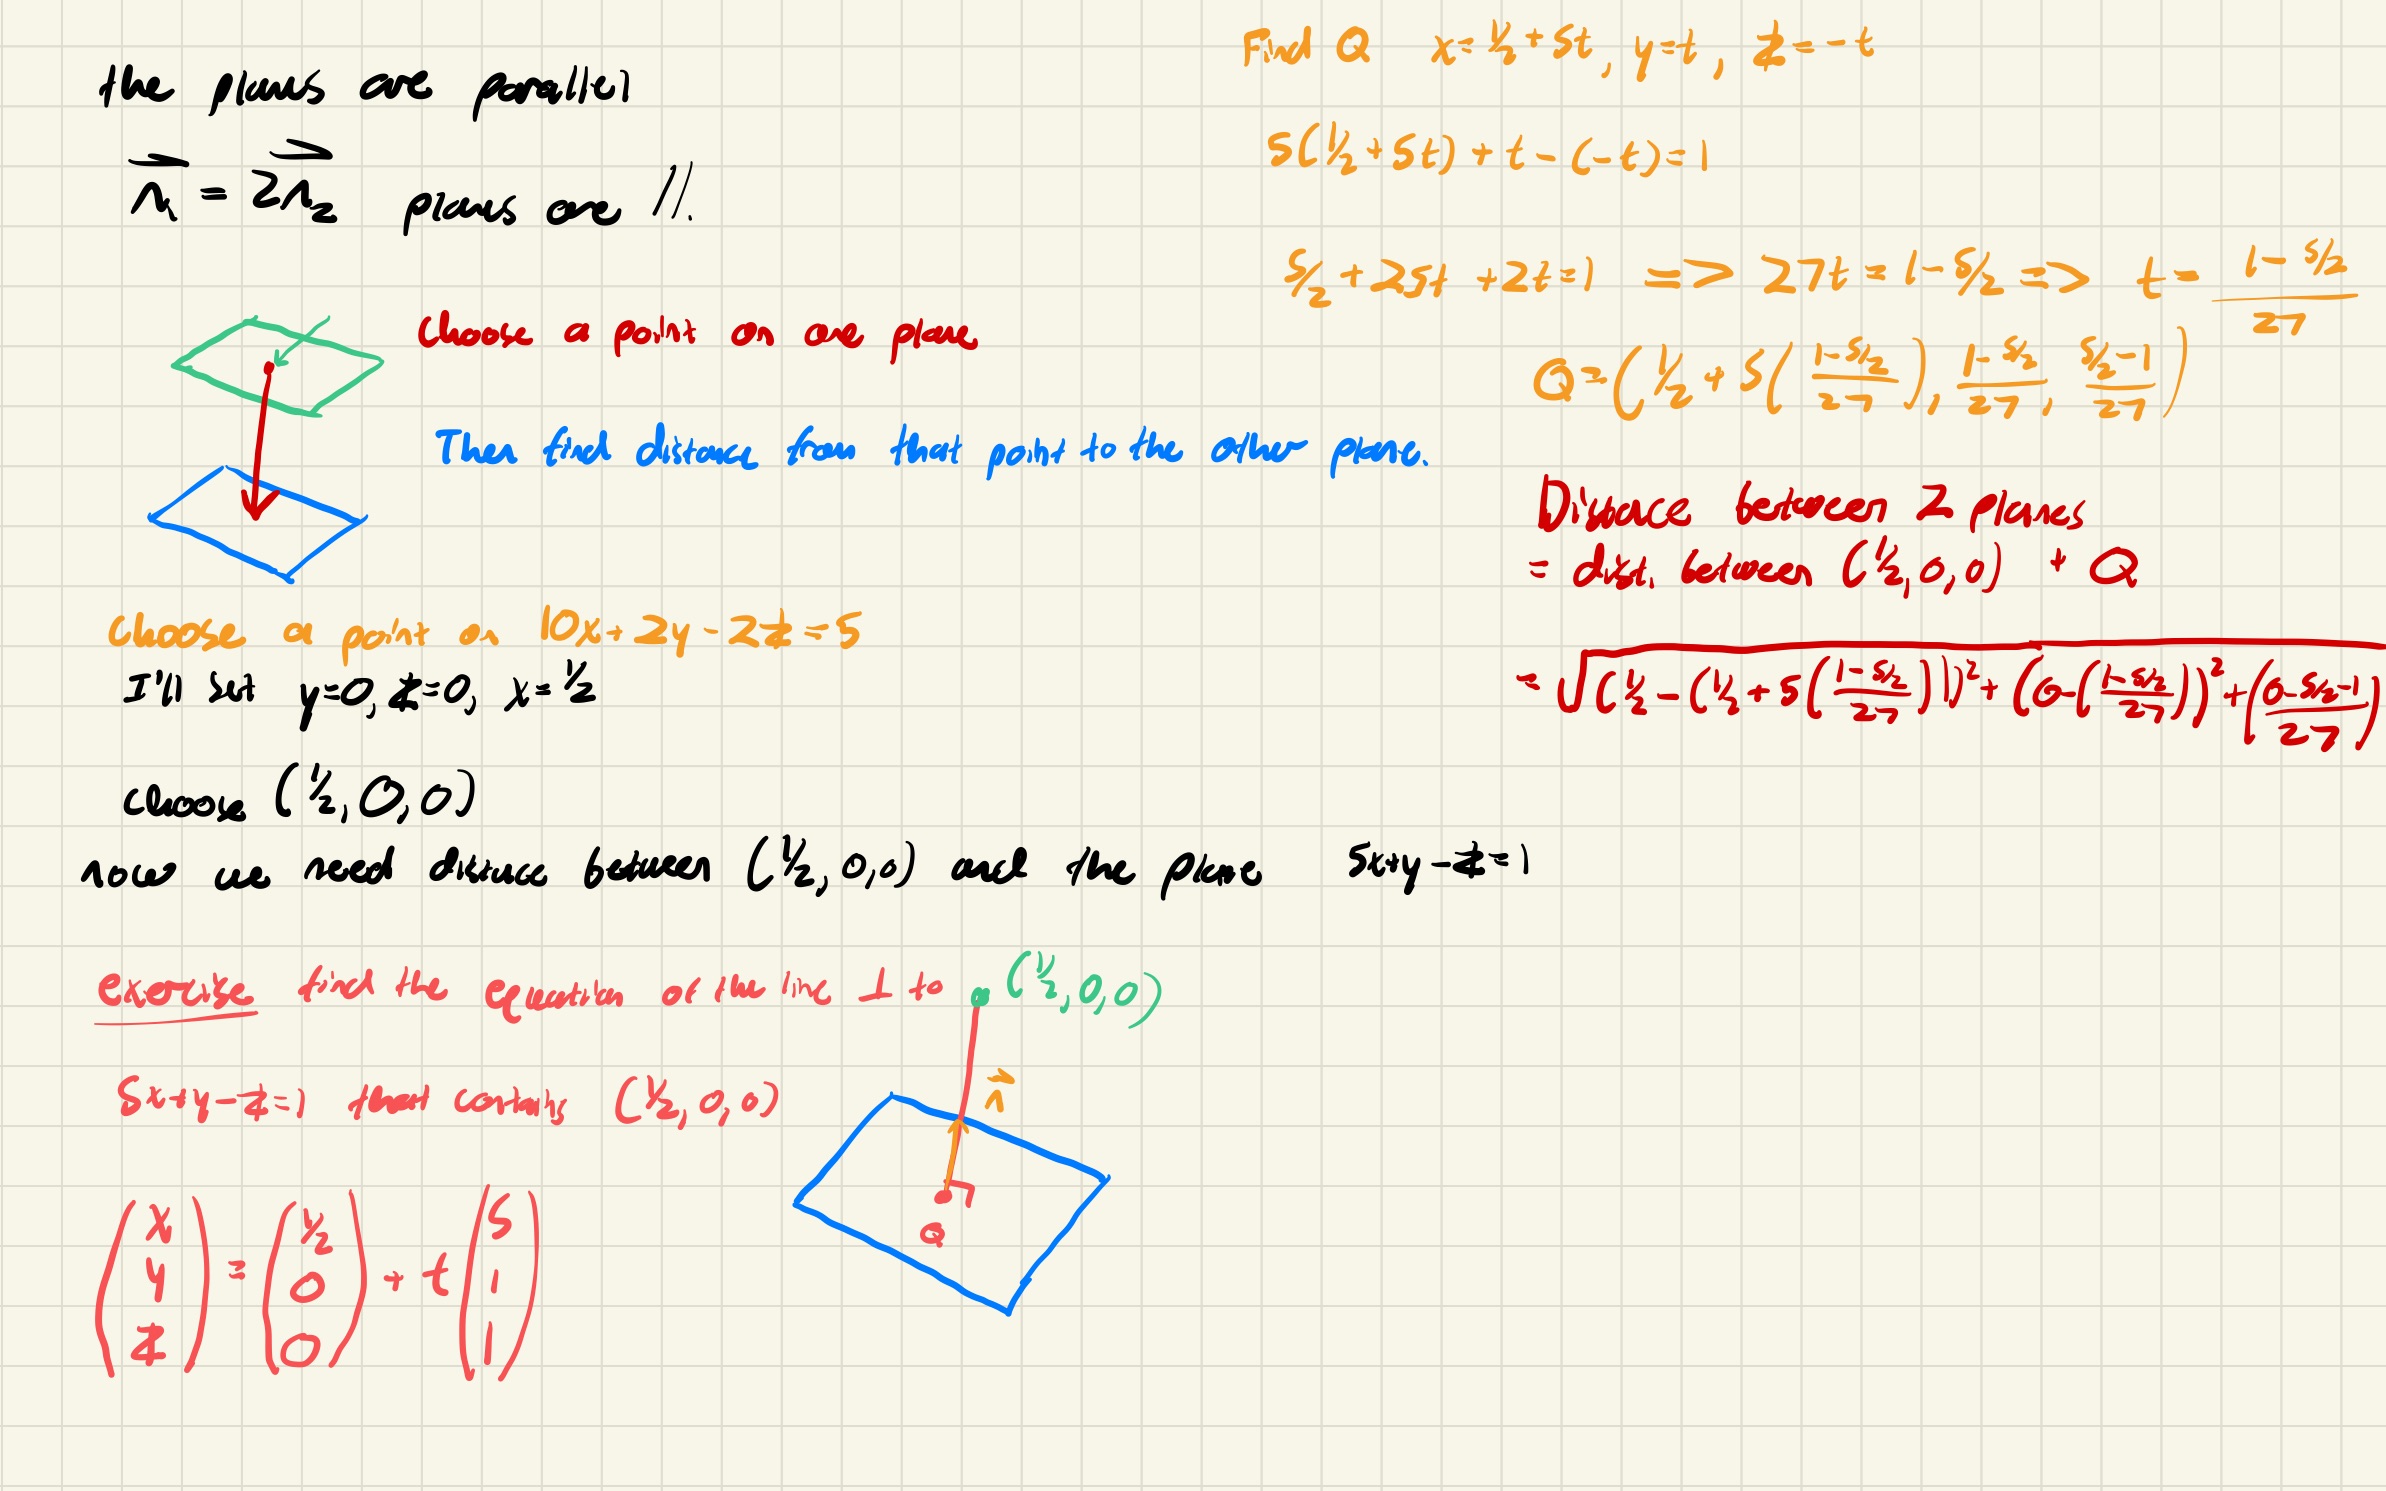 the planes are parallel
n⃗₁ = 2n⃗₂ planes are //.
Choose a point on one plane
Then find distance from that point to the other plane.
Choose a point on 10x+2y-2z=5
I'll set y=0, z=0, x=1/2
choose (1/2, 0, 0)
now we need distance between (1/2, 0, 0) and the plane 5x+y-z=1
exercise find the equation of the line ⊥ to
5x+y-z=1 that contains (1/2, 0, 0)
(1/2, 0, 0)
n⃗
Q
(x y z) = (1/2 0 0) + t (5 1 1)
Find Q x=1/2+5t, y=t, z=-t
5(1/2+5t)+t-(-t)=1
5/2+25t+2t=1 => 27t=1-5/2 => t=(1-5/2)/27
Q=(1/2+5((1-5/2)/27), (1-5/2)/27, (5/2-1)/27)
Distance between 2 planes
= dist. between (1/2, 0, 0) + Q
= √((1/2-(1/2+5((1-5/2)/27)))²+(0-((1-5/2)/27))²+((0-5/2-1)/27)